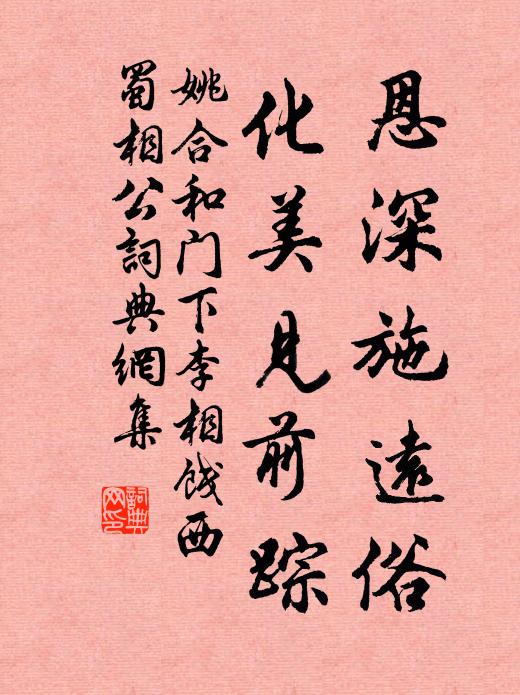 恩深施遠俗
化美見前踪
姚合和门下李相饯西
蜀相公詞典網集
詞典网印